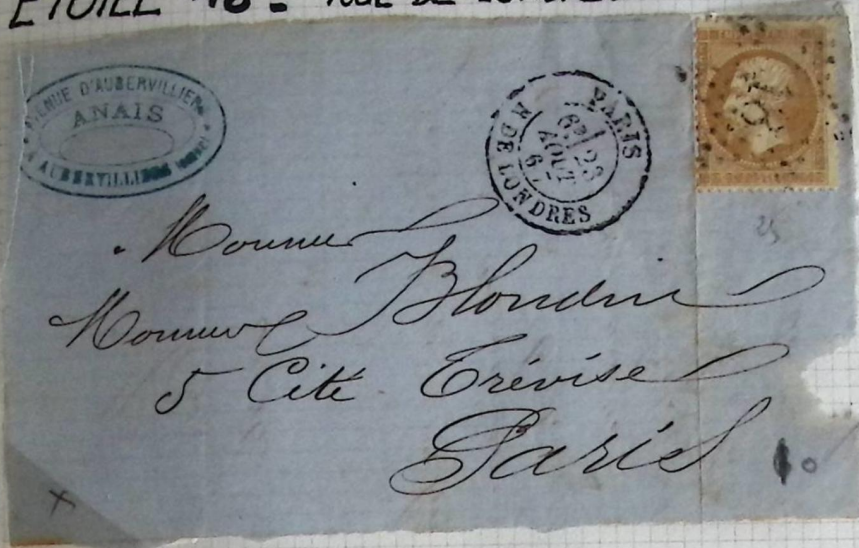 ETOILE 18 : RUE DE LONDRES
AVENUE D'AUBERVILLIERS
ANAIS
AUBERVILLIERS
PARIS
6E 23
AOUT
67
R. DE LONDRES
18
25
Monsieur
Monsieur Blondin
5 Cité Trévise
Paris
x